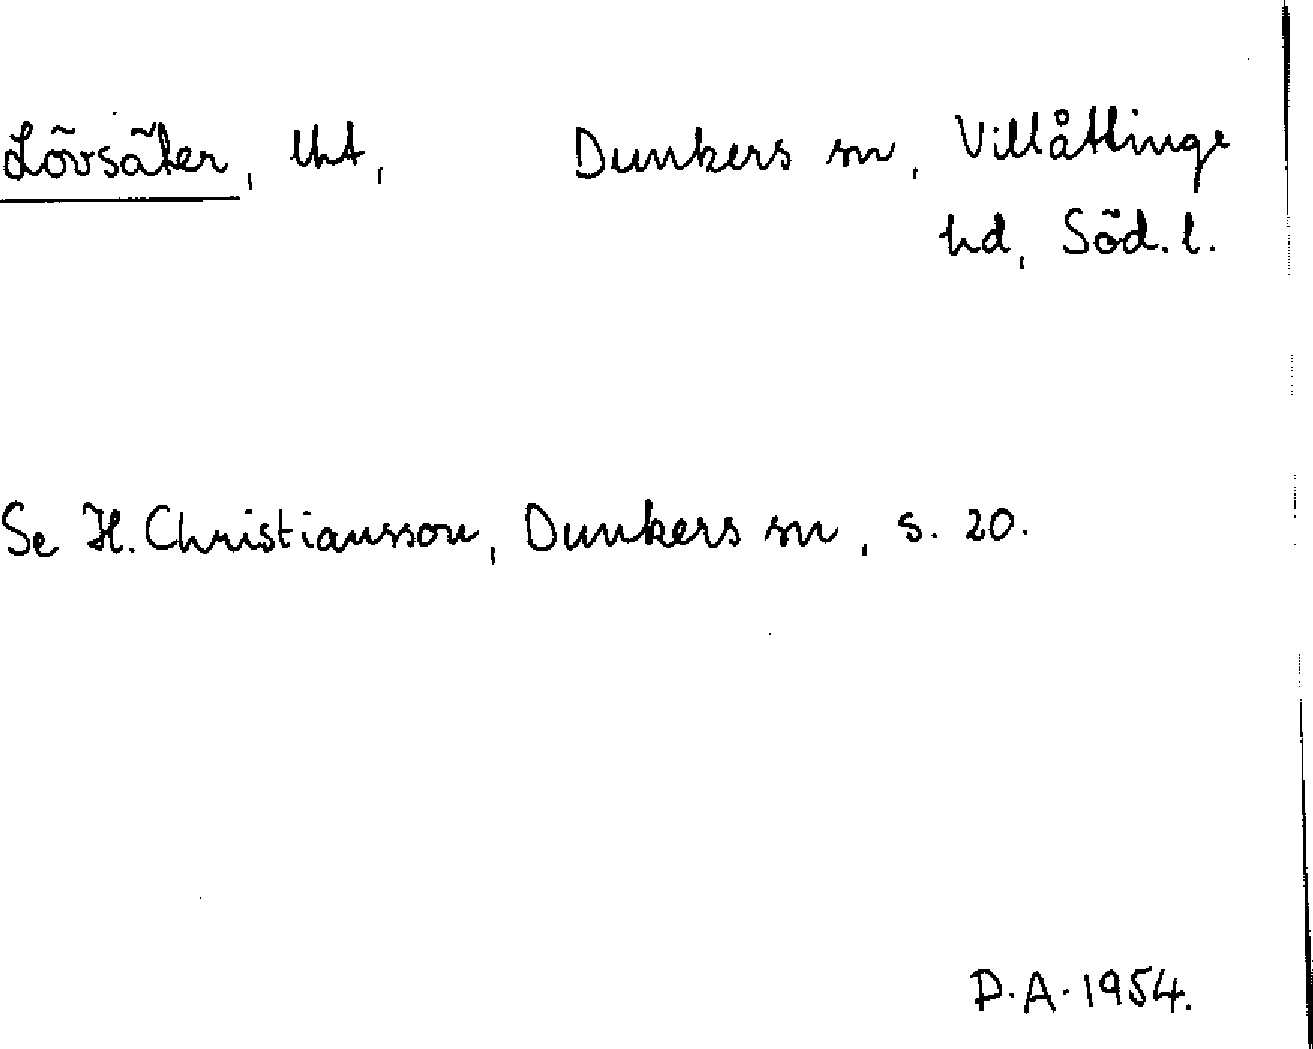 Lövsäter, lht, Dunkers sn, Villåttinge
hd, Söd. l.
Se H. Christiansson, Dunkers sn, s. 20.
D.A. 1954.